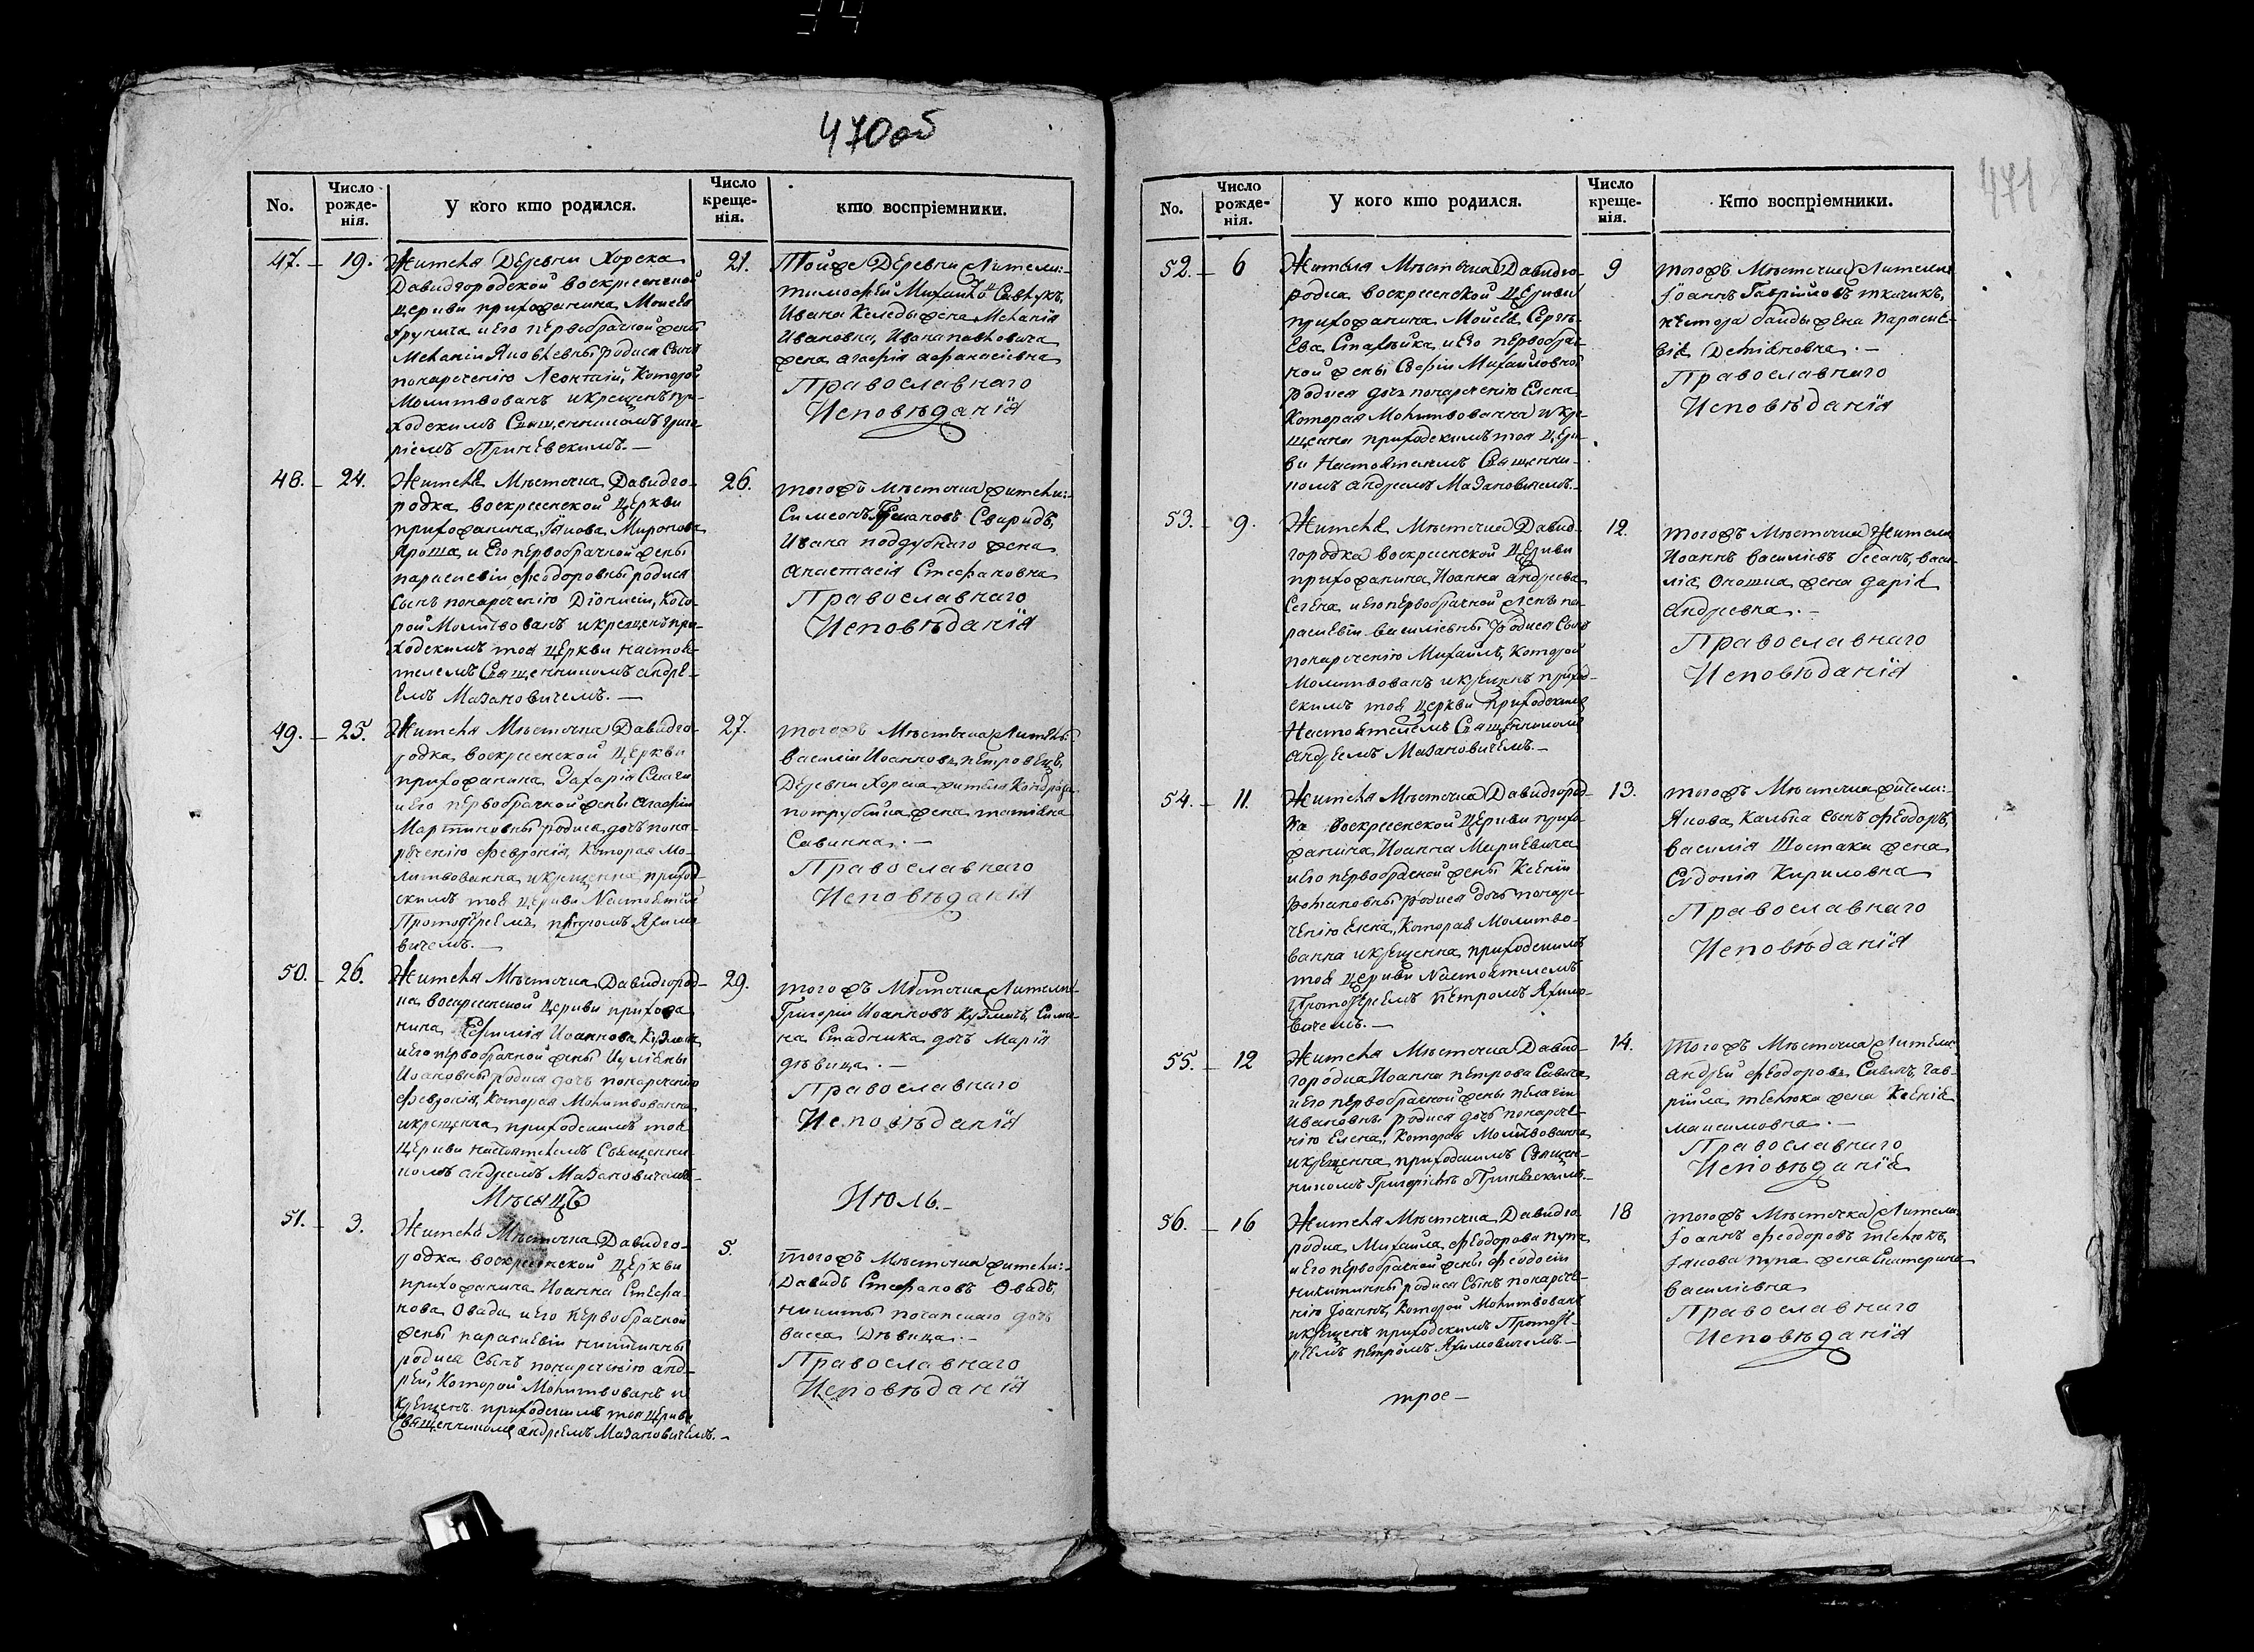 470об
No.
Число рожде-нія.
У кого кто родился.
Число креще-нія.
кто воспріемники.
47. – 19.
Жителя Деревни Хорска
Давидгородской воскресенской
церкви прихожанина Моисея
и его первобрачной жены
Меланіи Яковлевны родися Сынъ
понареченію Леонтій, Которой
Молитвованъ и крещенъ при-
ходскимъ Священникомъ Григо-
ріемъ Гриневскимъ. –
21.
Тойже Деревни Жители:-
тимофей Михайловъ
Ивана жена Меланія
Ивановна, Ивана Павловича
жена агафія афанасіевна
Православнаго
Исповѣданія
48. – 24.
Жителя Мѣстечка Давидго-
родка воскресенской Церкви
прихожанина, Іакова Миронова
Яроша и Его первобрачной жены
параскевіи Феодоровны родися
Сынъ понареченію Діонисій, Кото-
рой Молитвованъ и крещенъ при-
ходскимъ тоя Церкви настоя-
телемъ Священникомъ андре-
Емъ Мазановичемъ. –
26.
тогожъ мѣстечка жители:-
Симеонъ Свиридъ,
Ивана поддубнаго жена
Анастасія Стефановна
Православнаго
Исповѣданія
49. – 25.
Жителя Мѣстечка Давидго-
родка воскресенской Церкви
прихожанина Захарія
и Его первобрачной жены агафіи
Мартиновны родися дочь пона-
реченію Февронія, Которая Мо-
литвованна и крещенна приход-
скимъ тоя церкви Настоятелемъ
Протоіереемъ петромъ Якимо-
вичемъ. –
27.
тогожъ Мѣстечка Жители:
василій Иоанновъ петровецъ,
Деревни Хорска жителя Кондрата
жена татіана
Савична. –
Православнаго
Исповѣданія
50. – 26.
Жителя Мѣстечка Давидгород-
ка воскресенской Церкви прихожа
нина Ефимія Иоаннова
и Его первобрачной жены Иуліены
Иоановны родися дочь понареченію
Февронія, Которая Молитвованна
и крещенна приходскимъ тоя
Церкви настоятелемъ Священни-
комъ андреемъ Мазановичемъ –
29.
тогожъ Мѣстечка Жители
Григорій Иоанновъ Симо-
на Стадника дочь Марія
дѣвица. –
Православнаго
Исповѣданія
Мѣсяцъ
Июль. –
51. – 3.
Жителя Мѣстечка Давидго-
родка воскресенской Церкви
прихожанина Иоанна Стефа-
нова Овада и Его первобрачной
жены параскевіи никитичны
родися Сынъ понареченію анд-
рей, Которой Молитвованъ и
Крещенъ приходскимъ тоя Церкви
Священникомъ андреемъ Мазановичемъ. –
5.
тогожъ Мѣстечка жители:-
Давидъ Стефановъ Овадъ,
никиты дочь
васса Дѣвица. –
Православнаго
Исповѣданія
471
No.
Число рожде-нія.
У кого кто родился.
Число креще-нія.
Кто воспріемники.
52. – 6
Жителя Мѣстечка Давидго-
родка воскресенской Церкви
прихожанина Моисея Серге-
ева и Его первобрач-
ной жены Софіи Михайловной
родися дочь понареченію Елена
Которая Молитвованна и кре-
щенна приходскимъ тоя Церк-
ви Настоятелемъ Священни-
комъ андреемъ Мазановичемъ. –
9
тогожъ Мѣстечка Жители
Іоаннъ Гавріиловъ ткачикъ,
жена Параске-
вія Деміяновна. –
Православнаго
Исповѣданія
53. – 9.
Жителя Мѣстечка Давид-
городка воскресенской Церкви
прихожанина Иоанна андреева
и Его первобрачной жены па-
раскевіи василіевны родися Сынъ
понареченію Михаилъ, Которой
Молитвованъ и крещенъ приход-
скимъ тоя церкви приходскимъ
Настоятелемъ Священникомъ
андреемъ Мазановичемъ. –
12.
тогожъ Мѣстечка Жители
Иоаннъ василіевъ васи-
лія жена дарія
Андреевна. –
Православнаго
Исповѣданія
54. – 11.
Жителя Мѣстечка Давидгород-
ка воскресенской Церкви прихо-
жанина Иоанна
и Его первобрачной жены Ксеніи
Романовны родися дочь понаре-
ченію Елена, Которая Молитво-
ванна и крещенна приходскимъ
тоя церкви Настоятелемъ
Протоіереемъ петромъ Якимо-
вичемъ. –
13.
тогожъ Мѣстечка жители:-
Якова сынъ Феодоръ,
василія Шостака жена
Евдокія Кириловна
Православнаго
Исповѣданія
55. – 12
Жителя Мѣстечка Давид-
городка Иоанна петрова
и Его первобрачной жены пелагіи
Ивановны родися дочь понарече-
нію Елена, Которая Молитвованна
и крещенна приходскимъ Священ-
никомъ Григоріемъ Гриневскимъ. –
14.
тогожъ Мѣстечка Жители
андрей Феодоровъ гав-
ріила жена Ксенія
максимовна. –
Православнаго
Исповѣданія
56. – 16
Жителя Мѣстечка Давидго-
родка Михаила Феодорова пупа
и Его первобрачной жены Феодосіи
никитичны родися Сынъ понарече-
нію Іоаннъ, Которой Молитвованъ
и крещенъ приходскимъ Протоіе-
реемъ петромъ Якимовичемъ. –
18
тогожъ Мѣстечка Жители
Іоаннъ Феодоровъ
Іакова пупа жена Екатерина
василіевна
Православнаго
Исповѣданія
трое –